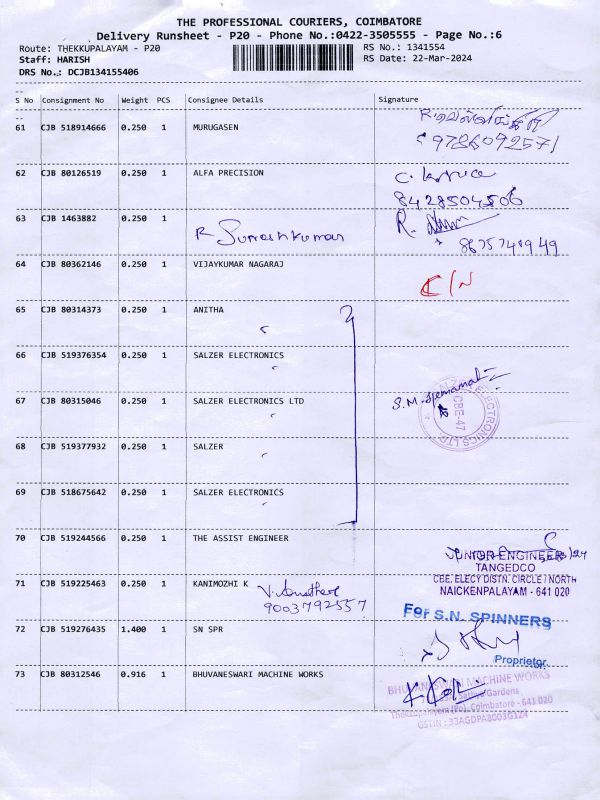 THE PROFESSIONAL COURIERS, COIMBATORE
Delivery Runsheet - P20 - Phone No.:0422-3505555 - Page No.:6
Route: THEKKUPALAYAM - P20 RS No.: 1341554
Staff: HARISH RS Date: 22-Mar-2024
DRS No.: DCJB134155406
S No Consignment No Weight PCS Consignee Details Signature
61 CJB 518914666 0.250 1 MURUGASEN
9786092571
62 CJB 80126519 0.250 1 ALFA PRECISION
8428504506
63 CJB 1463882 0.250 1 R Sureshkumar R.
64 CJB 80362146 0.250 1 VIJAYKUMAR NAGARAJ C/N
65 CJB 80314373 0.250 1 ANITHA
66 CJB 519376354 0.250 1 SALZER ELECTRONICS
67 CJB 80315046 0.250 1 SALZER ELECTRONICS LTD S.M.
ELECTRONICS LTD
CBE-47
68 CJB 519377932 0.250 1 SALZER
69 CJB 518675642 0.250 1 SALZER ELECTRONICS
70 CJB 519244566 0.250 1 THE ASSIST ENGINEER
JUNIOR ENGINEER
TANGEDCO
CBE. ELECY DISTN. CIRCLE / NORTH
NAICKENPALAYAM - 641 020
71 CJB 519225463 0.250 1 KANIMOZHI K
9003792557
For S.N. SPINNERS
72 CJB 519276435 1.400 1 SN SPR
Proprietor
73 CJB 80312546 0.916 1 BHUVANESWARI MACHINE WORKS
BHUVANESWARI MACHINE WORKS
Gardens
Coimbatore - 641 020
GSTIN : 33AGDPA8003G1Z4